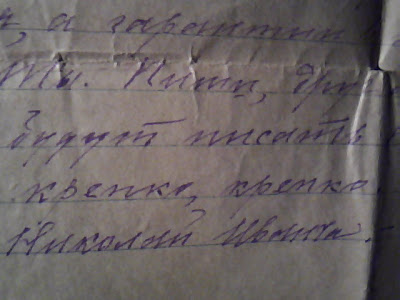 , а гарантии
Ты. Пиши, дру
будут писать
крепко, крепко
Николай Ивана.